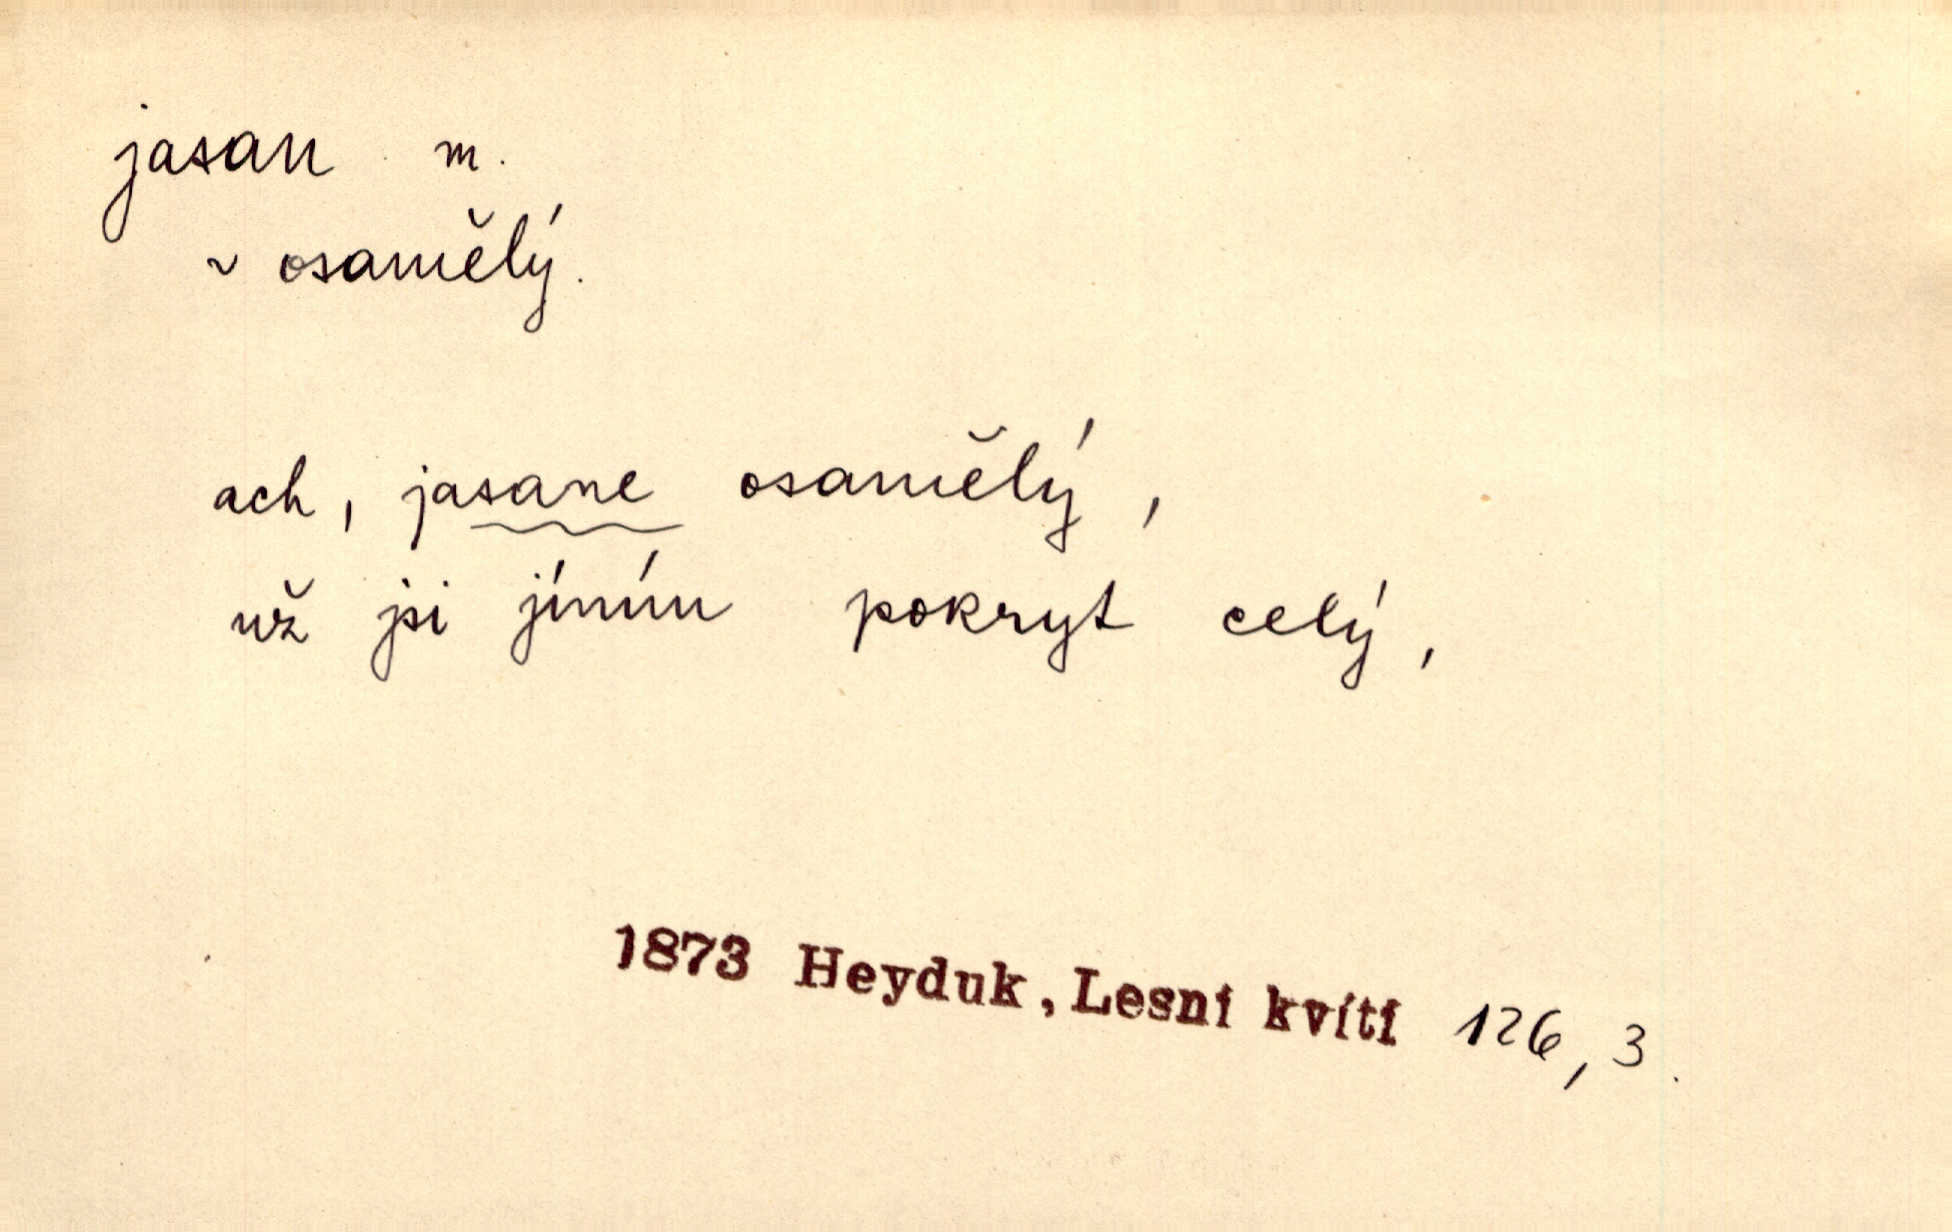 jasan m.
~ osamělý.
ach, jasane osamělý,
už jsi jíním pokryt celý,
1873 Heyduk, Lesní kvítí 126, 3.